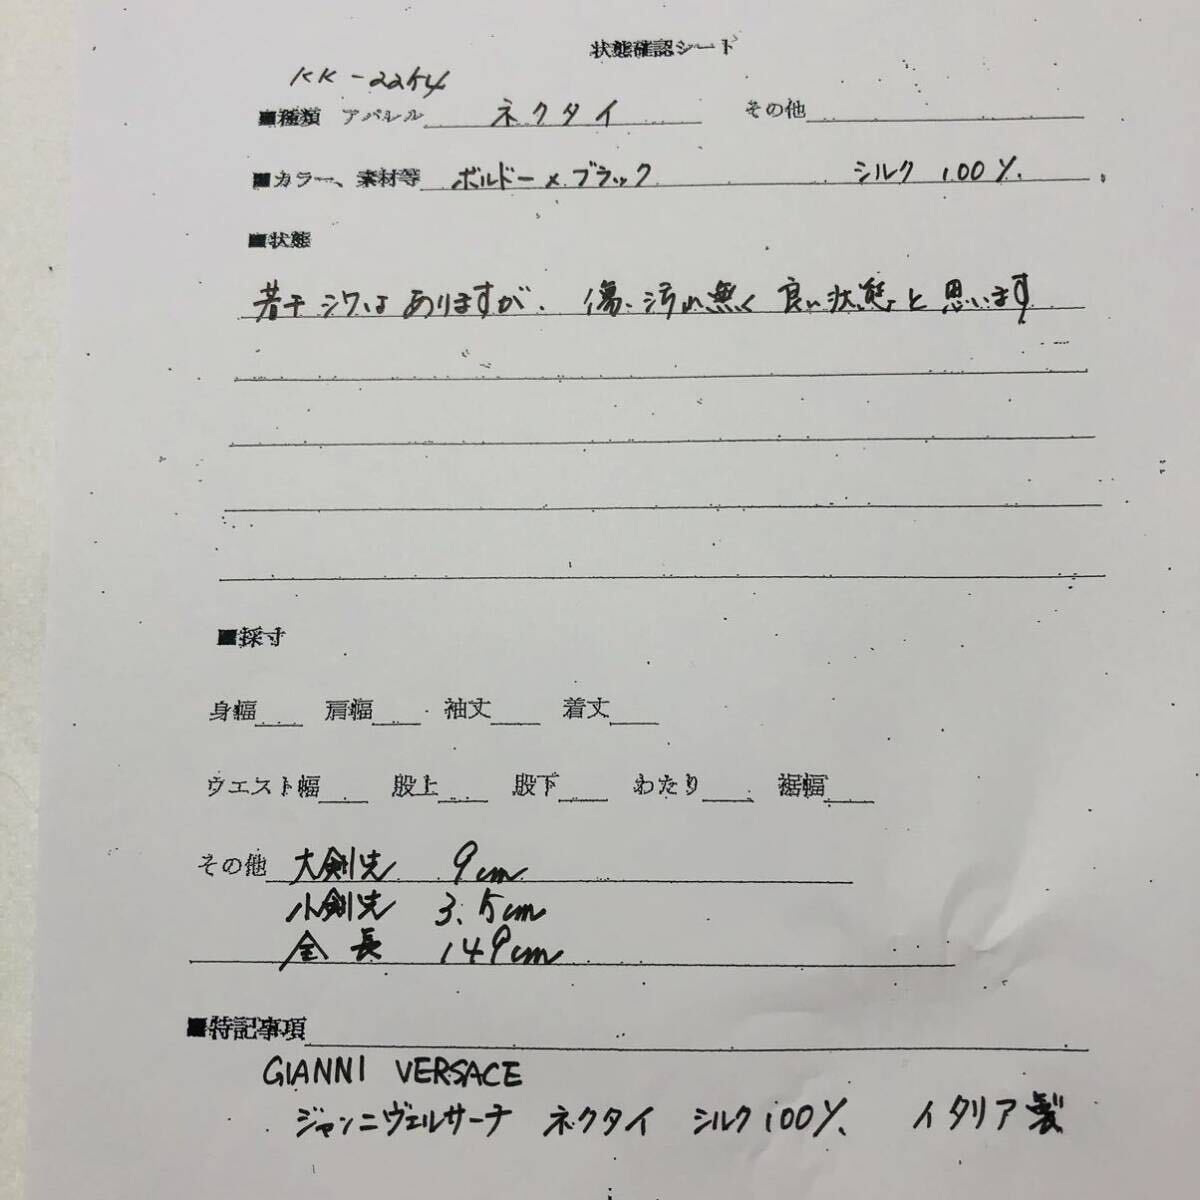 状態確認シート
KK-2254
■種類 アパレル ネクタイ その他
■カラー、素材等 ボルドー×ブラック シルク 100%
■状態
若干シワはありますが、傷、汚れ無く良い状態と思います
■採寸
身幅 肩幅 袖丈 着丈
ウエスト幅 股上 股下 わたり 裾幅
その他 大剣先 9cm
小剣先 3.5cm
全長 149cm
■特記事項
GIANNI VERSACE
ジャンニヴェルサーチ ネクタイ シルク100% イタリア製